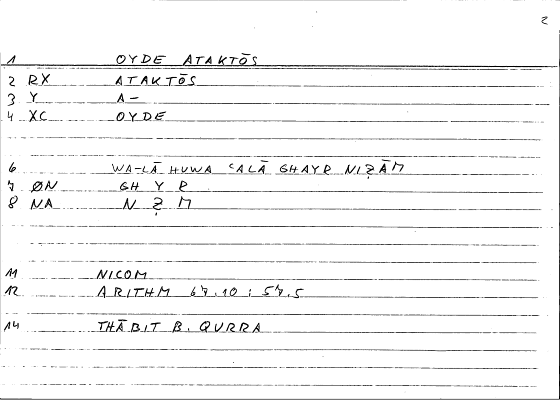 2
1 OYDE ATAKTŌS
2 RX ATAKTŌS
3 Y A-
4 XC OYDE
6 WA-LĀ HUWA ʿALĀ GHAYR NIẒĀM
7 ØN GH Y R
8 NA N Ẓ M
11 NICOM
12 ARITHM 67.10 : 57.5
14 THĀBIT B. QURRA